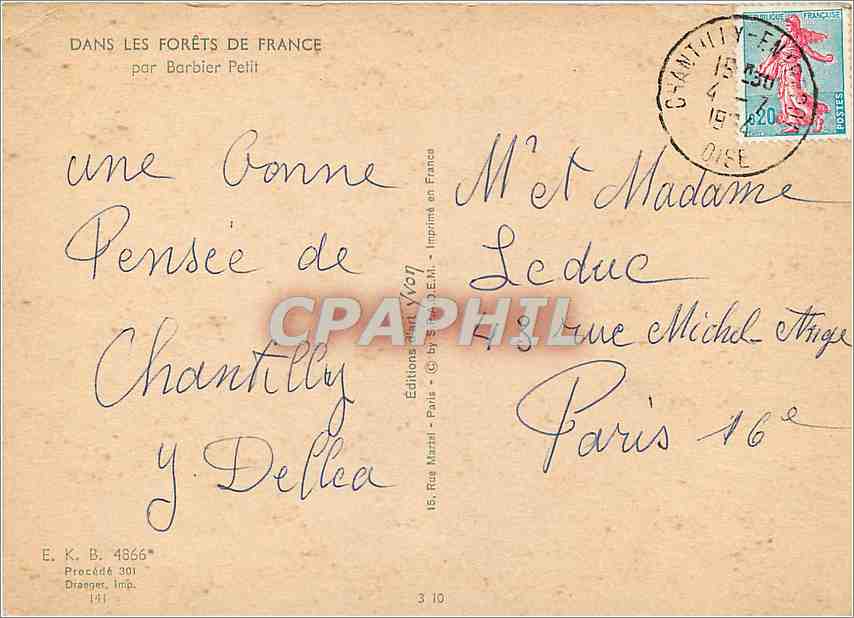 DANS LES FORÊTS DE FRANCE
par Barbier Petit
une bonne
Pensée de
Chantilly
y. Dellea
E. K. B. 4866*
Procédé 301
Draeger, Imp.
141
Éditions d'art Yvon
15, Rue Martel - Paris - © by S.P.A.D.E.M. - Imprimé en France
3 10
CPAPHIL
RÉPUBLIQUE FRANÇAISE
0,20
POSTES
CHANTILLY
15 30
4 - 7
OISE
Mr et Madame
Leduc
43 rue Michel-Ange
Paris 16e